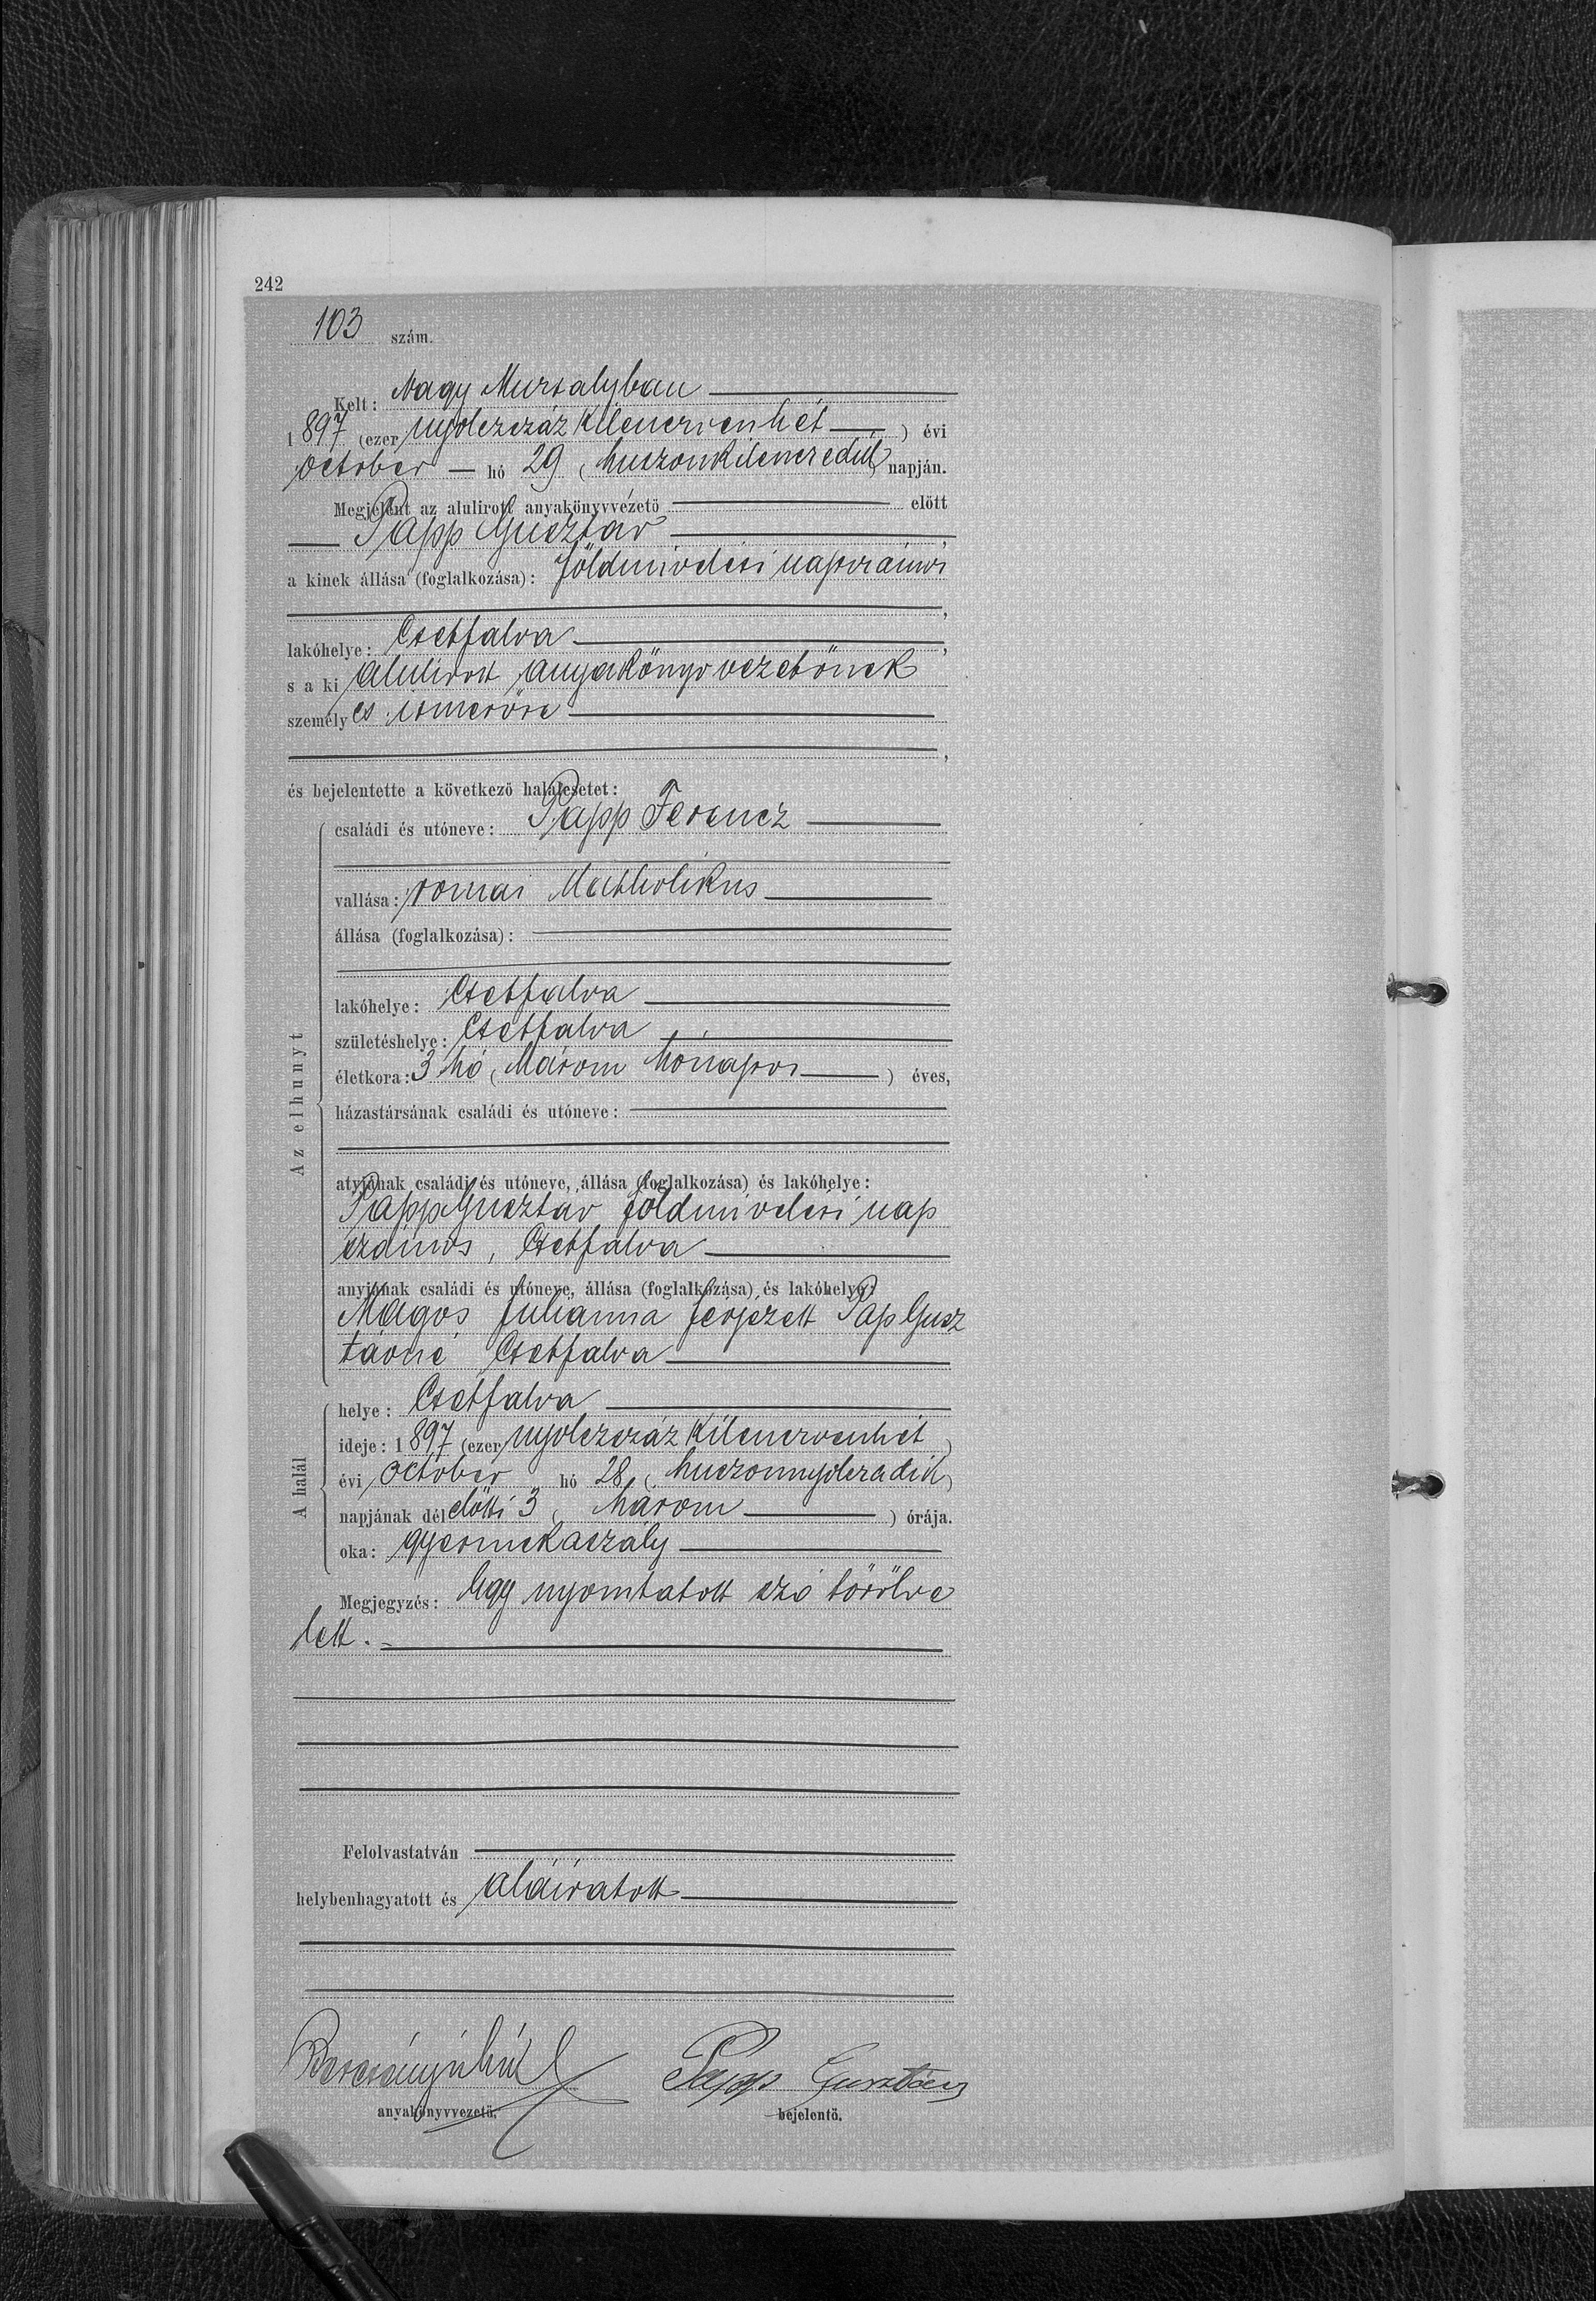 242
103 szám.
Kelt: Nagy Muzsalyban
1897 (ezer nyolczszáz kilenczvenhét ) évi
october hó 29 (huszonkilenczedik) napján.
Megjelent az alulirott anyakönyvvezető előtt
Papp Gusztáv ,
a kinek állása (foglalkozása): földmivelési napszámos
,
lakóhelye: Csetfalva ,
s a ki alulirott anyakönyvvezetőnek
személyes ismerőse
,
és bejelentette a következő halálesetet:
Az elhunyt
családi és utóneve: Papp Ferencz
vallása: római Katholikus
állása (foglalkozása):
lakóhelye: Csetfalva
születéshelye: Csetfalva
életkora: 3 hó (három hónapos ) éves,
házastársának családi és utóneve:
atyjának családi és utóneve, állása (foglalkozása) és lakóhelye:
Papp Gusztáv földmivelési nap
számos, Csetfalva
anyjának családi és utóneve, állása (foglalkozása) és lakóhelye:
Magos Julianna férjezett Pap Gusz
távné Csetfalva
A halál
helye: Csetfalva
ideje: 1897 (ezer nyolczszáz kilenczvenhét )
évi október hó 28 (huszonnyolczadik)
napjának délelőtti 3 (három ) órája.
oka: gyermekaszály
Megjegyzés: Egy nyomtatott szó törölve
lett.
Felolvastatván
helybenhagyatott és aláiratott
Papp Gusztáv
anyakönyvvezető. bejelentő.